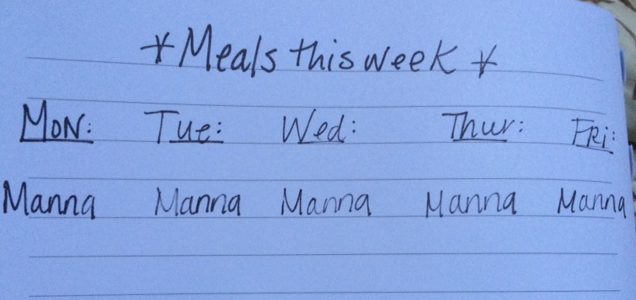 *Meals this week*
Mon: Tue: Wed: Thur: Fri:
Manna Manna Manna Manna Manna